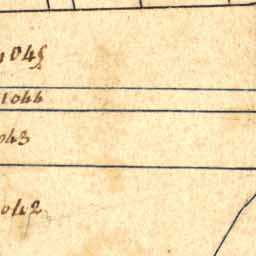 1045
1044
043
042